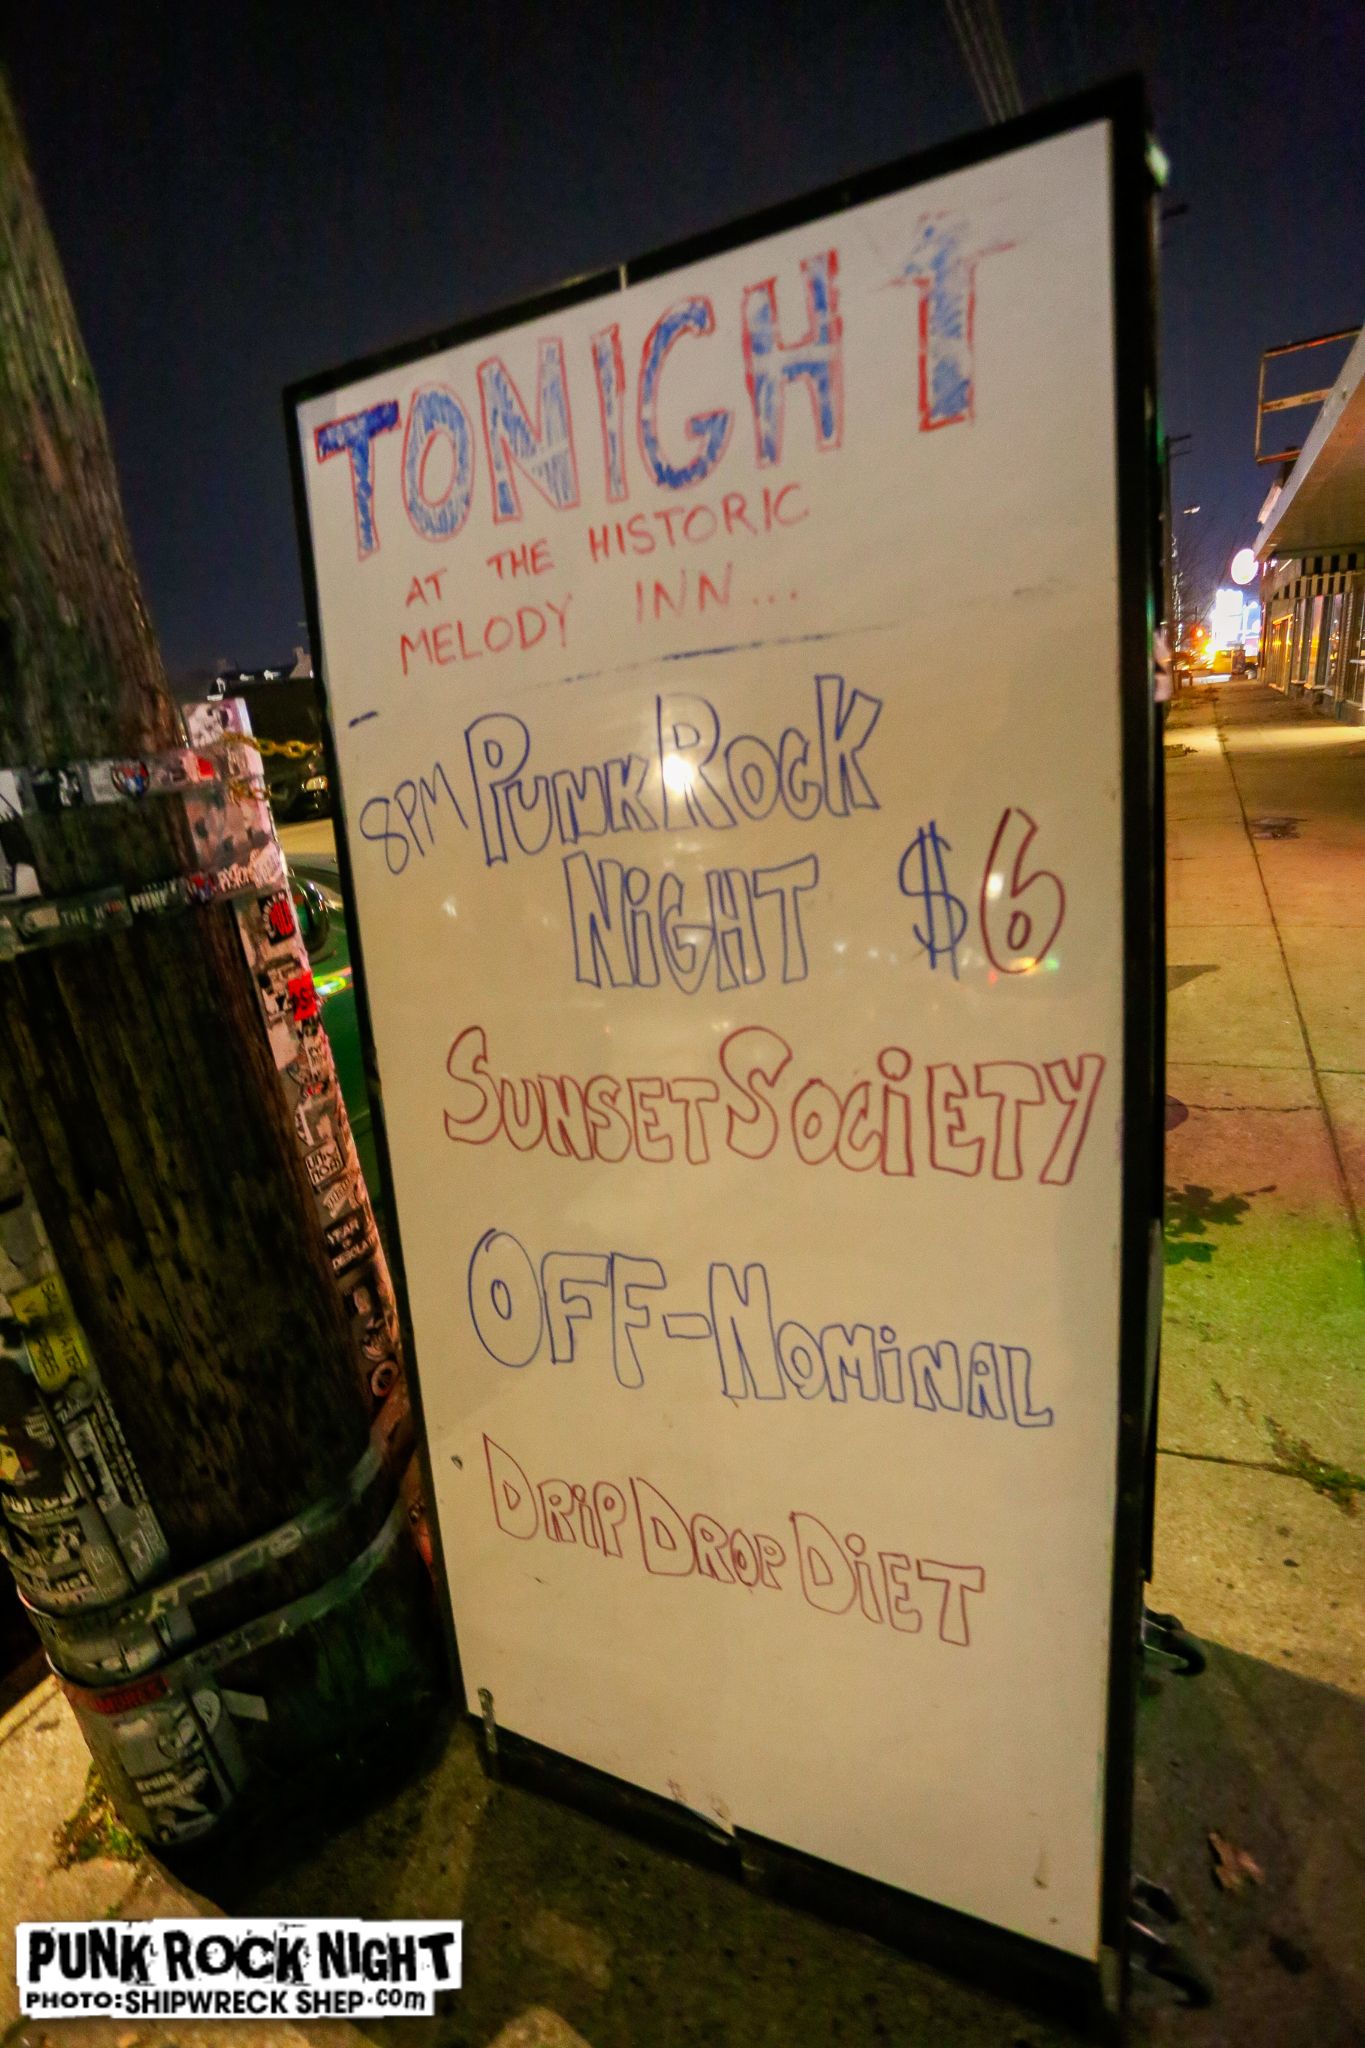 TONIGHT
AT THE HISTORIC
MELODY INN...
8PM PUNK ROCK
NIGHT $6
SUNSET SOCIETY
OFF-NOMINAL
DRIP DROP DIET
PUNK
YEAR
PUNK ROCK NIGHT
PHOTO: SHIPWRECK SHEP.com